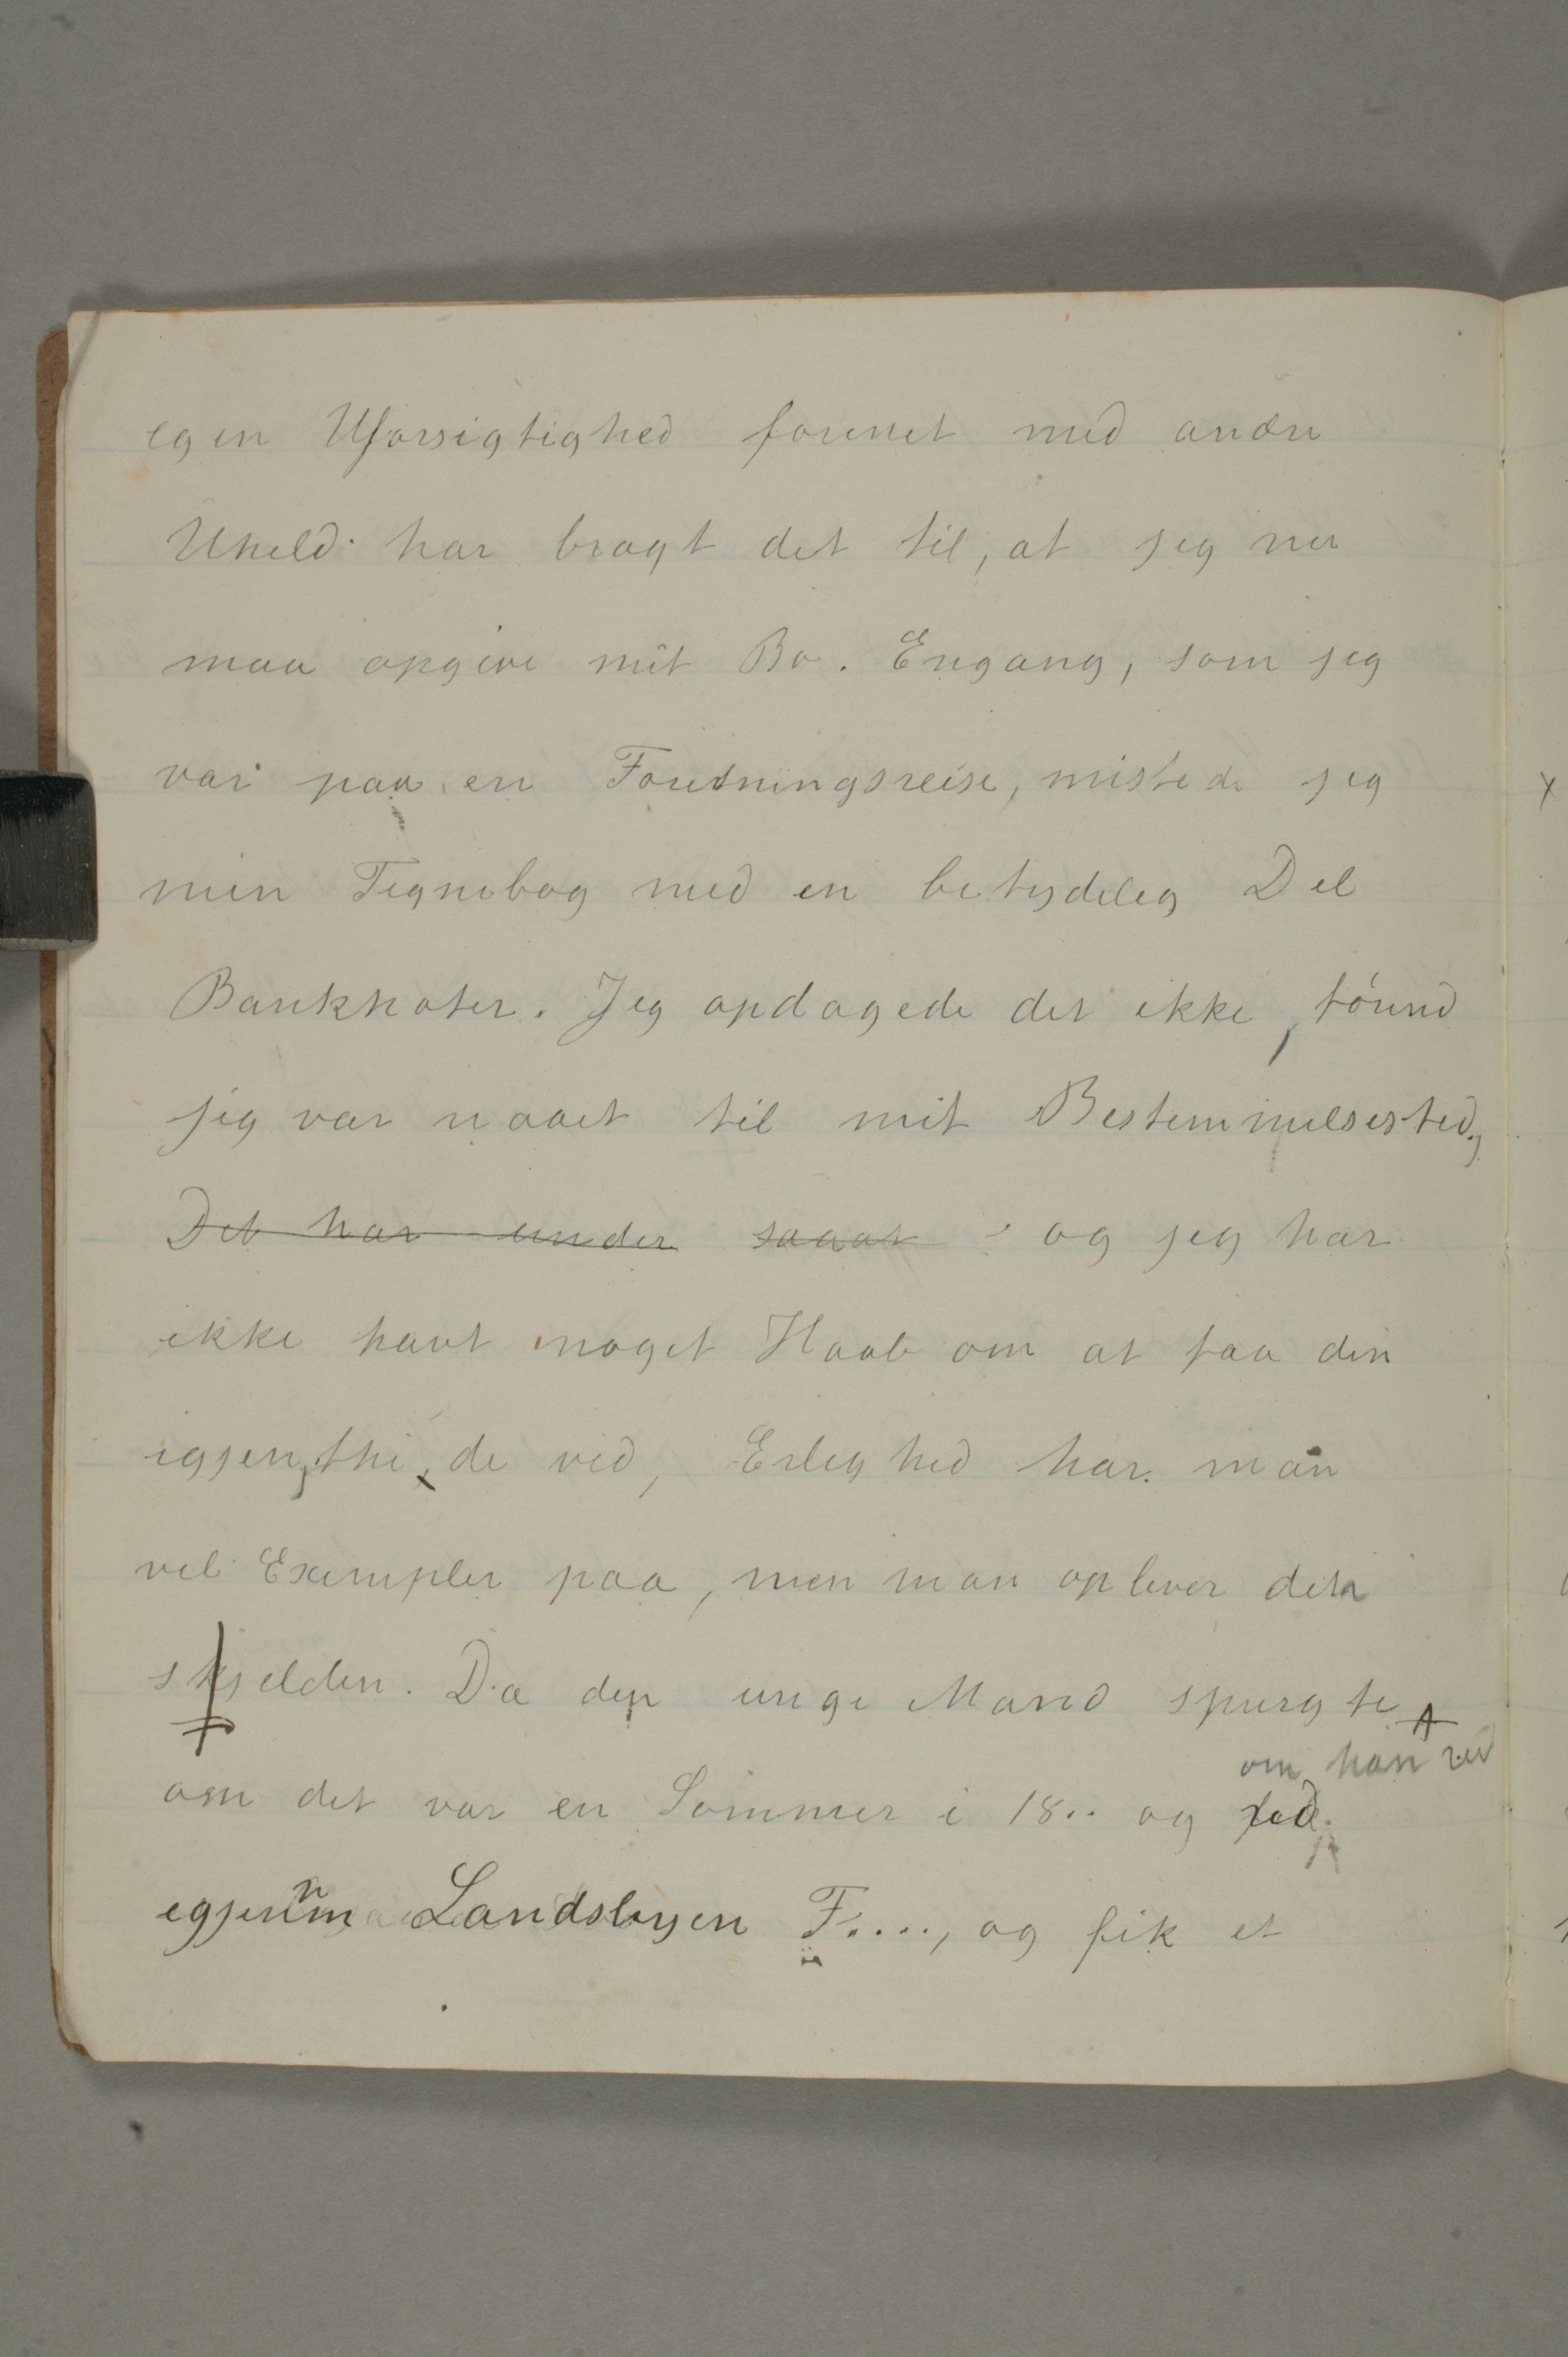 egen Uforsigtighed forenet med andre
Uheld har bragt det til, at jeg nu
maa opgive mit Bo. Engang, som jeg
var paa en Foretningsreise, mistede jeg
min Tegnebog med en betydeleg Del
Banknoter. Jeg opdagede det ikke, førend
jeg var naaet til mit Bestemmelsested,
Det har under saaat og jeg har
ikke havt noget Haab om at faa den
igjen, thi, de ved, Erleghed har man
vel Exempler paa, men man oplever den
skjelden. Da den unge Mand spurgte
om han red
om det var en Sommer i 18.. og
egjennm Landsbyen F...., og fik et